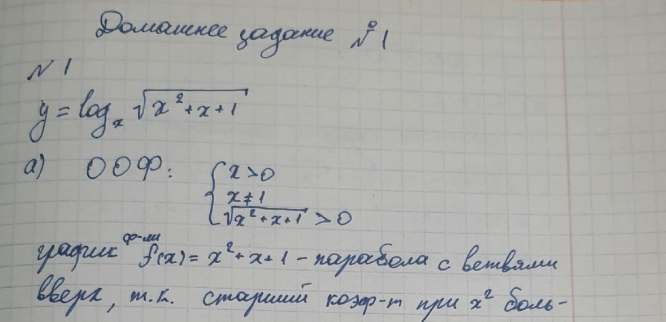 Домашнее задание №1
№1
y = log_x √(x² + x + 1)
а) ООФ: { x > 0
x ≠ 1
√(x² + x + 1) > 0
график ф-ии f(x) = x² + x + 1 - парабола с ветвями
вверх, т.к. старший коэф-т при x² боль-